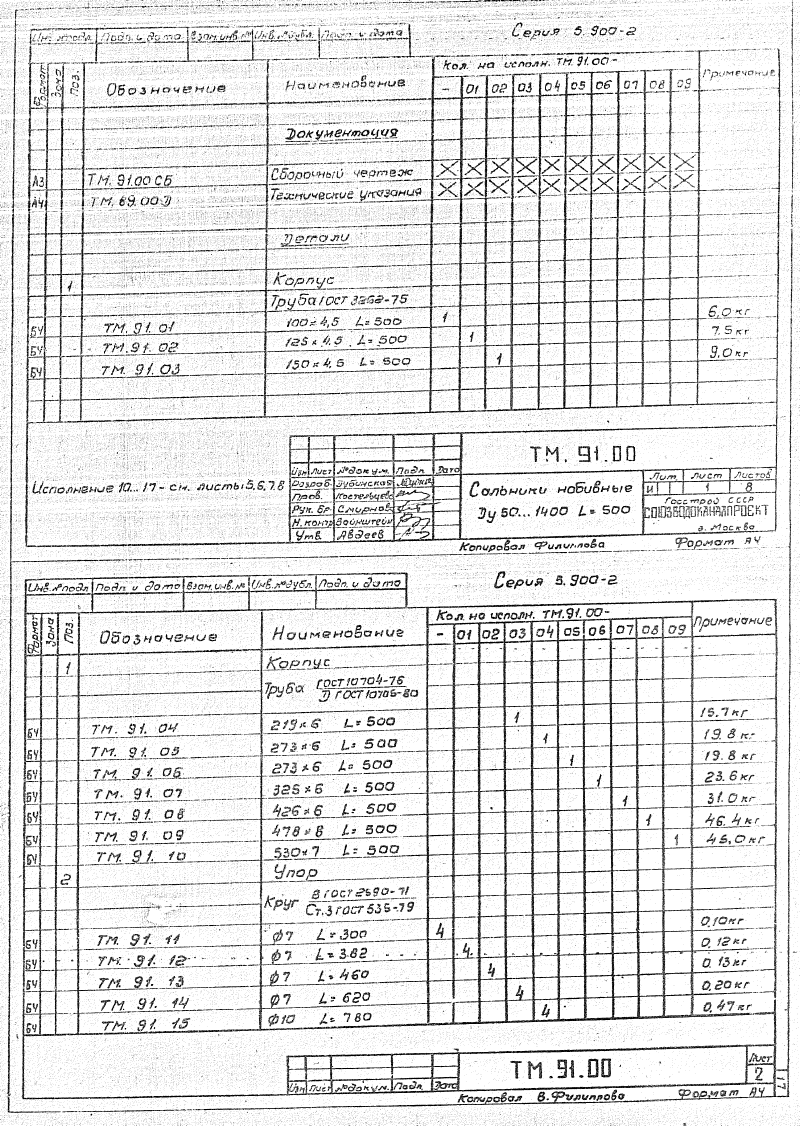 Серия 5.900-2
Инв.№подл. Подп. и дата Взам.инв.№ Инв.№дубл. Подп. и дата
Формат Зона Поз. Обозначение Наименование Кол. на исполн. ТМ.91.00- Примечание
- 01 02 03 04 05 06 07 08 09
Документация
А3 ТМ. 91.00 СБ Сборочный чертеж X X X X X X X X X X
А4 ТМ. 69.00Д Технические указания X X X X X X X X X X
Детали
1 Корпус
Труба ГОСТ 3262-75
БЧ ТМ. 91. 01 100×4,5 L=500 1 6,0кг
БЧ ТМ. 91. 02 125×4,5 L=500 1 7.5кг
БЧ ТМ. 91. 03 150×4,5 L=500 1 9,0кг
Исполнение 10...17 - см. листы 5,6,7,8
Изм Лист №докум. Подп. Дата
Разраб. Зубинская
Пров. Костельцева
Рук. бр. Смирнов
Н.контр
Утв. Авдеев
ТМ. 91.00
Сальники набивные
Ду 50...1400 L=500
Лит. Лист Листов
И 1 8
Госстрой СССР
СОЮЗВОДОКАНАЛПРОЕКТ
г. Москва
Копировал Филиппова Формат А4
Серия 5.900-2
Инв.№подл Подп. и дата Взам.инв.№ Инв.№дубл. Подп. и дата
Формат Зона Поз. Обозначение Наименование Кол. на исполн. ТМ.91.00- Примечание
- 01 02 03 04 05 06 07 08 09
1 Корпус
Труба ГОСТ10704-76
Д ГОСТ10705-80
БЧ ТМ. 91. 04 219×6 L=500 1 15.7кг
БЧ ТМ. 91. 05 273×6 L=500 1 19.8кг
БЧ ТМ. 91. 06 273×6 L=500 1 19.8кг
БЧ ТМ. 91. 07 325×6 L=500 1 23.6кг
БЧ ТМ. 91. 08 426×6 L=500 1 31.0кг
БЧ ТМ. 91. 09 478×8 L=500 1 46.4кг
БЧ ТМ. 91. 10 530×7 L=500 1 45,0кг
2 Упор
Круг В ГОСТ 2590-71
Ст.3 ГОСТ 535-79
БЧ ТМ. 91. 11 Ø7 L=300 4 0,10кг
БЧ ТМ. 91. 12 Ø7 L=382 4 0,12кг
БЧ ТМ. 91. 13 Ø7 L=460 4 0,13кг
БЧ ТМ. 91. 14 Ø7 L=620 4 0,20кг
БЧ ТМ. 91. 15 Ø10 L=780 4 0,47кг
Изм Лист №докум. Подп. Дата
ТМ.91.00
Лист
2
Копировал В.Филиппова Формат А4